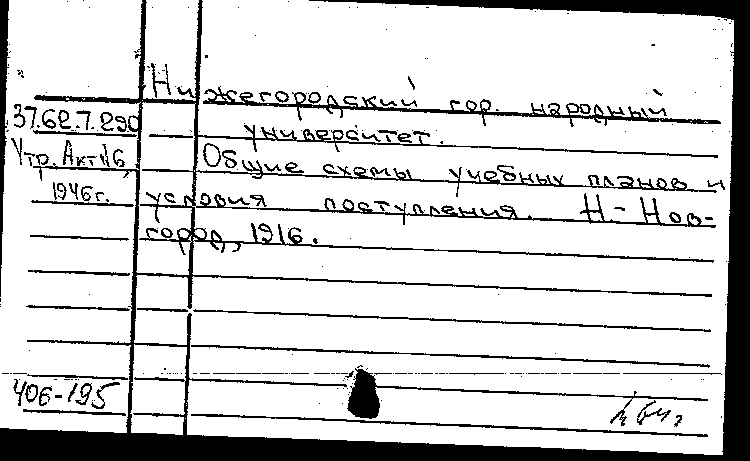 Нижегородский гор. народный
37.62.7.290
университет.
Утр. Акт №6,
Общие схемы учебных планов и
1946г.
условия поступления. Н-Нов-
город, 1916.
406-195